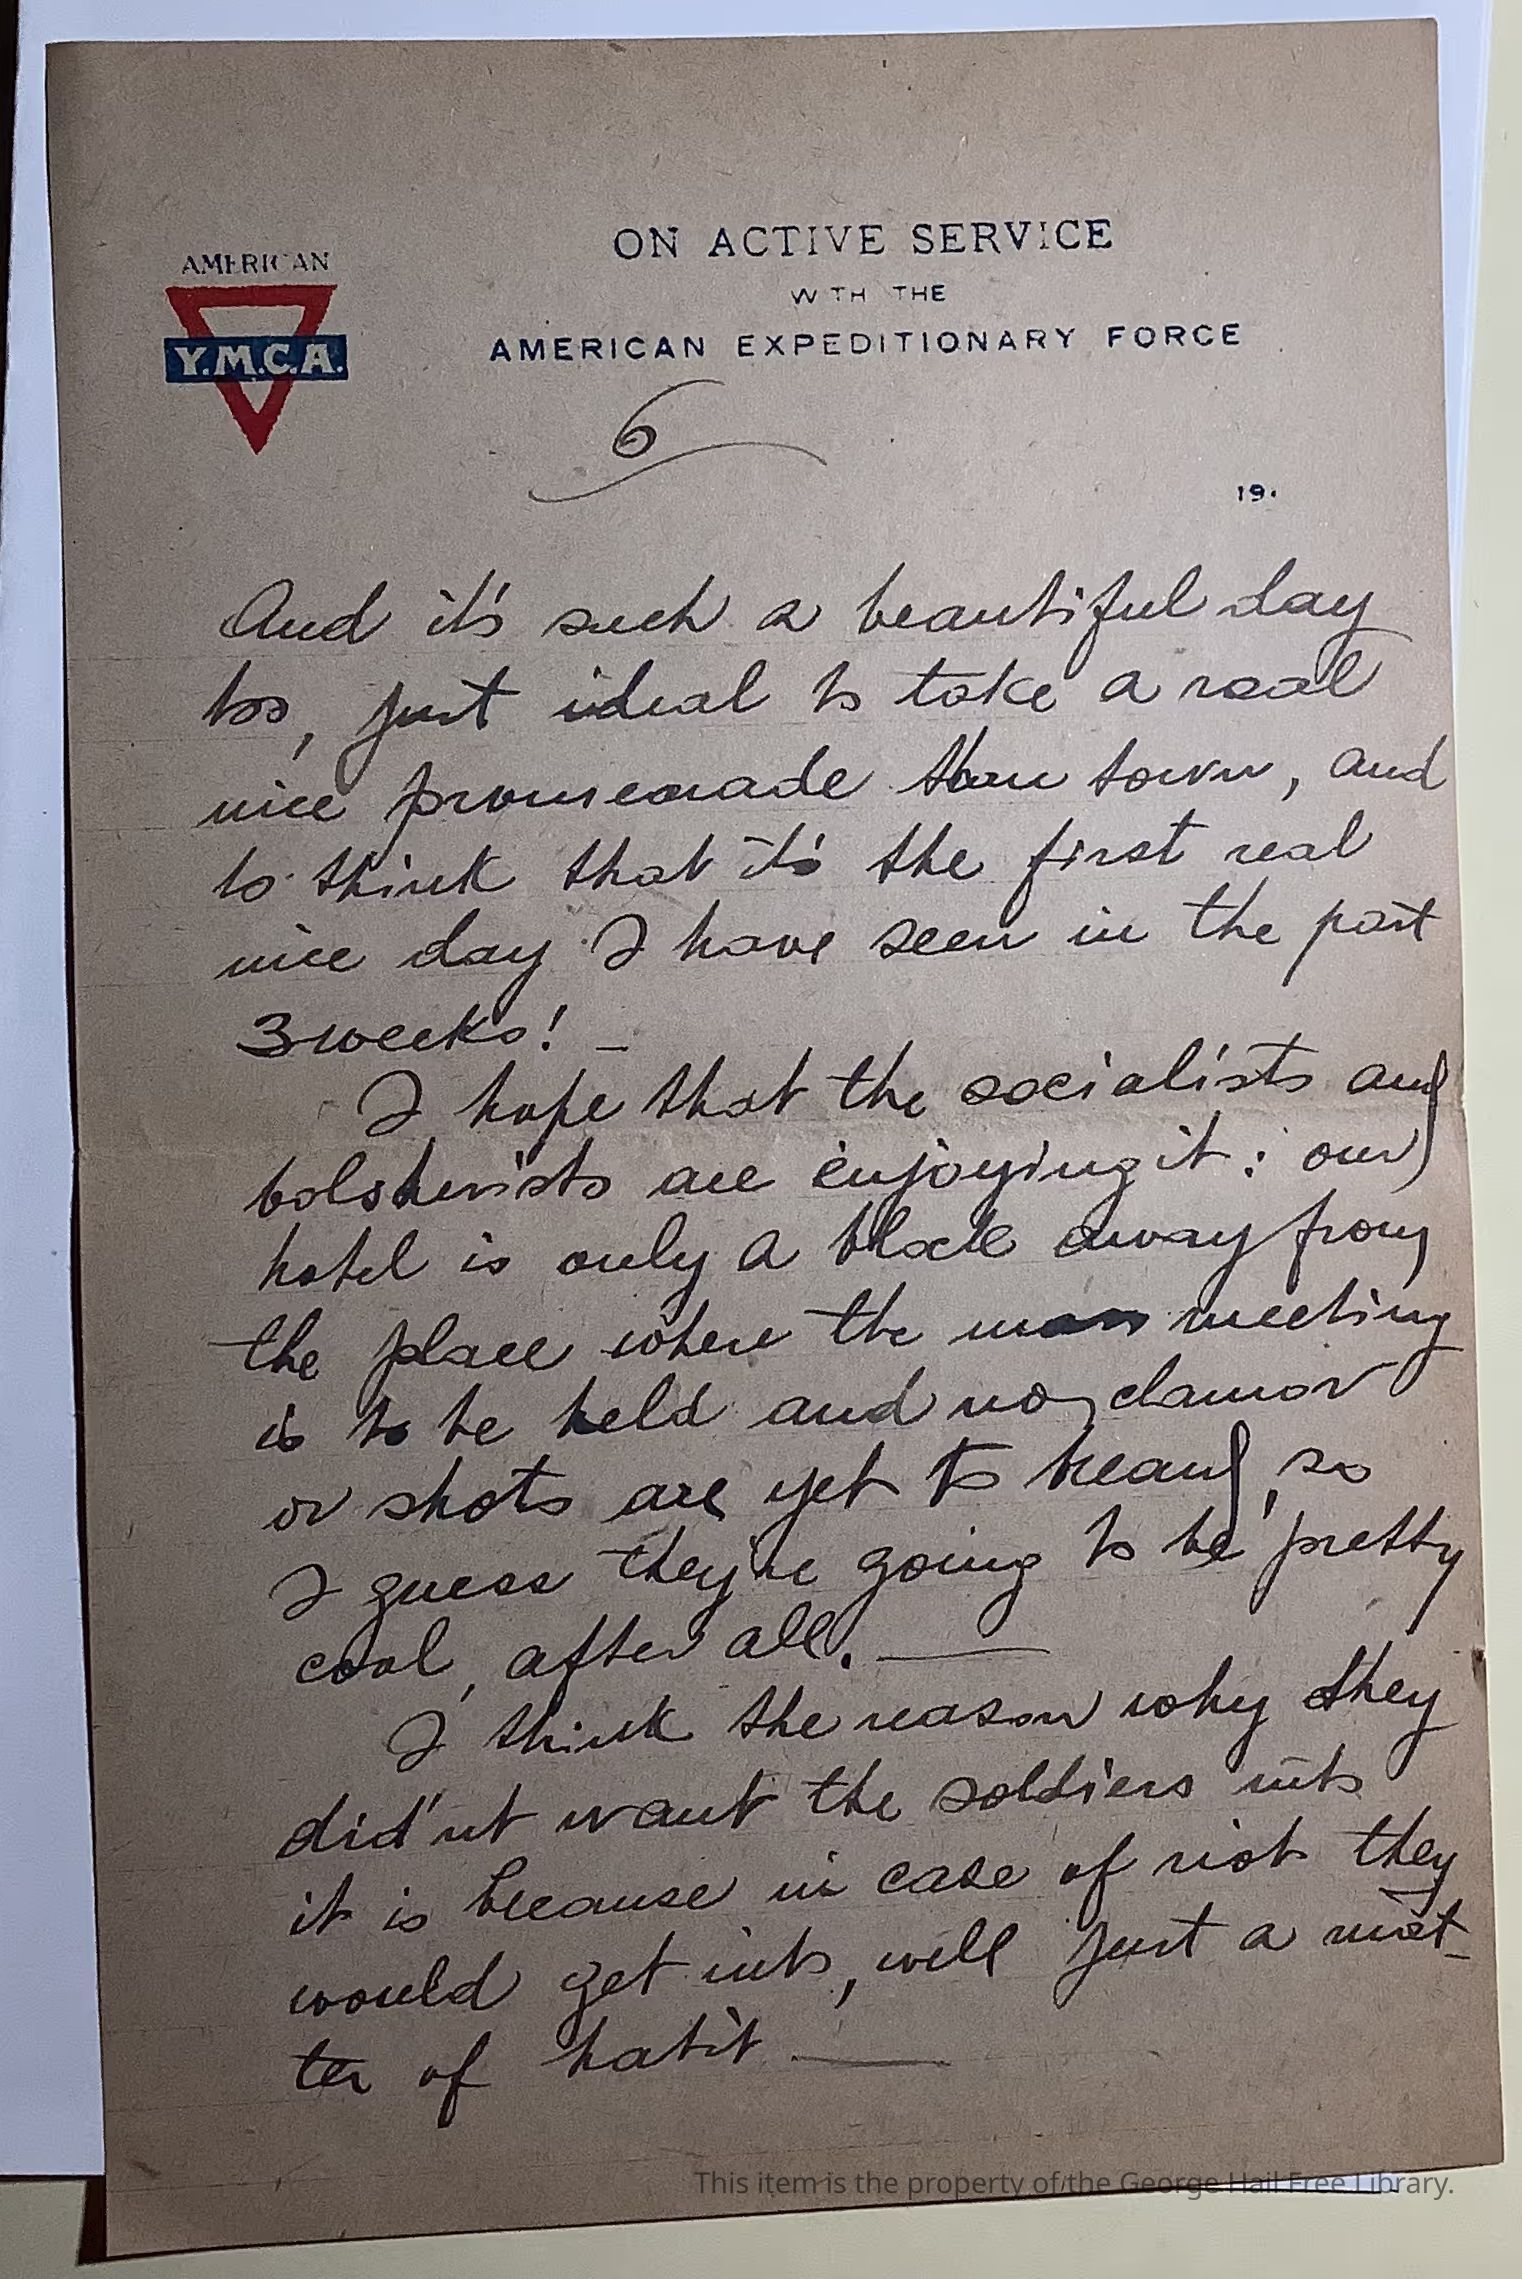 ON ACTIVE SERVICE
WITH THE
AMERICAN EXPEDITIONARY FORCE
AMERICAN
Y.M.C.A.
6
19.
And it's such a beautiful day
too, just ideal to take a real
nice promenade thru town, and
to think that it's the first real
nice day I have seen in the past
3 weeks! –
I hope that the socialists and
bolshevists are enjoying it: our
hotel is only a block away from
the place where the mass meeting
is to be held and no clamor
or shots are yet to heard, so
I guess they're going to be pretty
cool, after all. —
I think the reason why they
did'nt want the soldiers into
it is because in case of riot they
would get into, well just a mat-
ter of habit —
This item is the property of the George Hail Free Library.